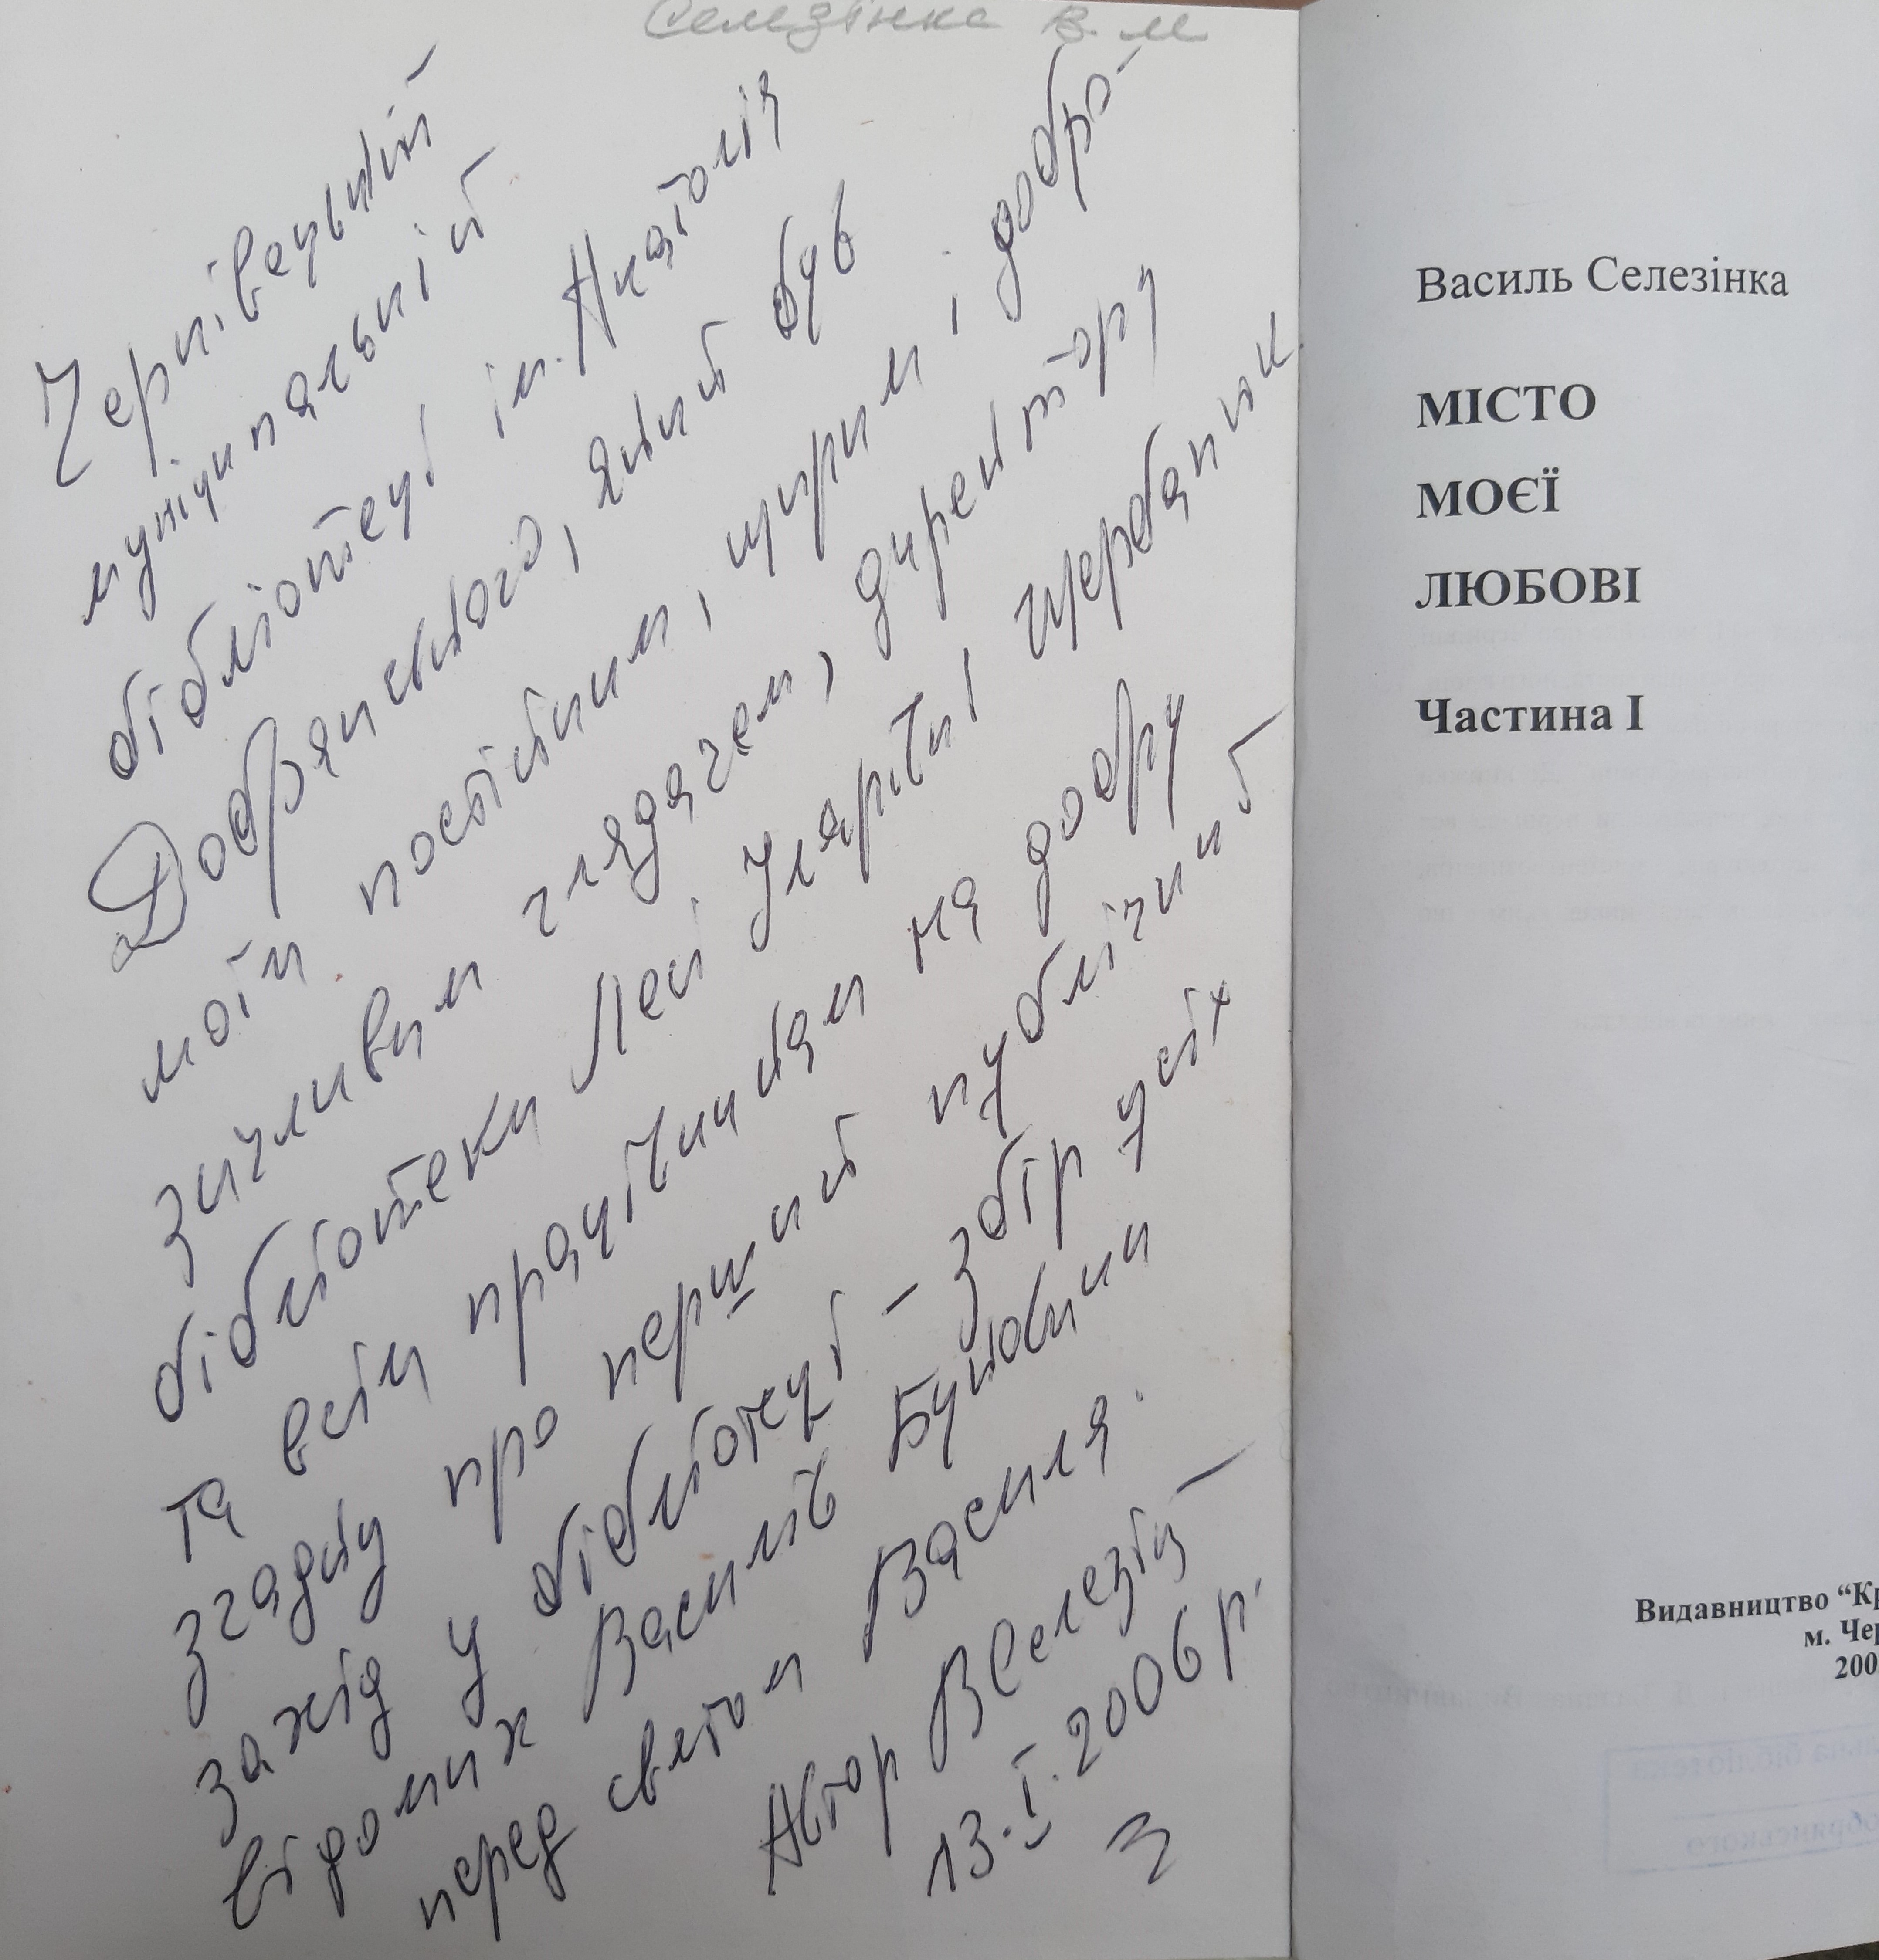 Селезінка В. М
Чернівецькій
муніципальній
бібліотеці ім. Анатолія
Добрянського, який був
моїм постійним, щирим і добро-
зичливим глядачем, директору
бібліотеки Лесі Щербанюк
та всім працівникам на добру
згадку про перший публічний
захід у бібліотеці – збір усіх
відомих Василів Буковини
перед святом Василя.
Автор ВСелезін
13.I.2006 р.
Василь Селезінка
МІСТО
МОЄЇ
ЛЮБОВІ
Частина I
Видавництво “Кр
м. Чер
200